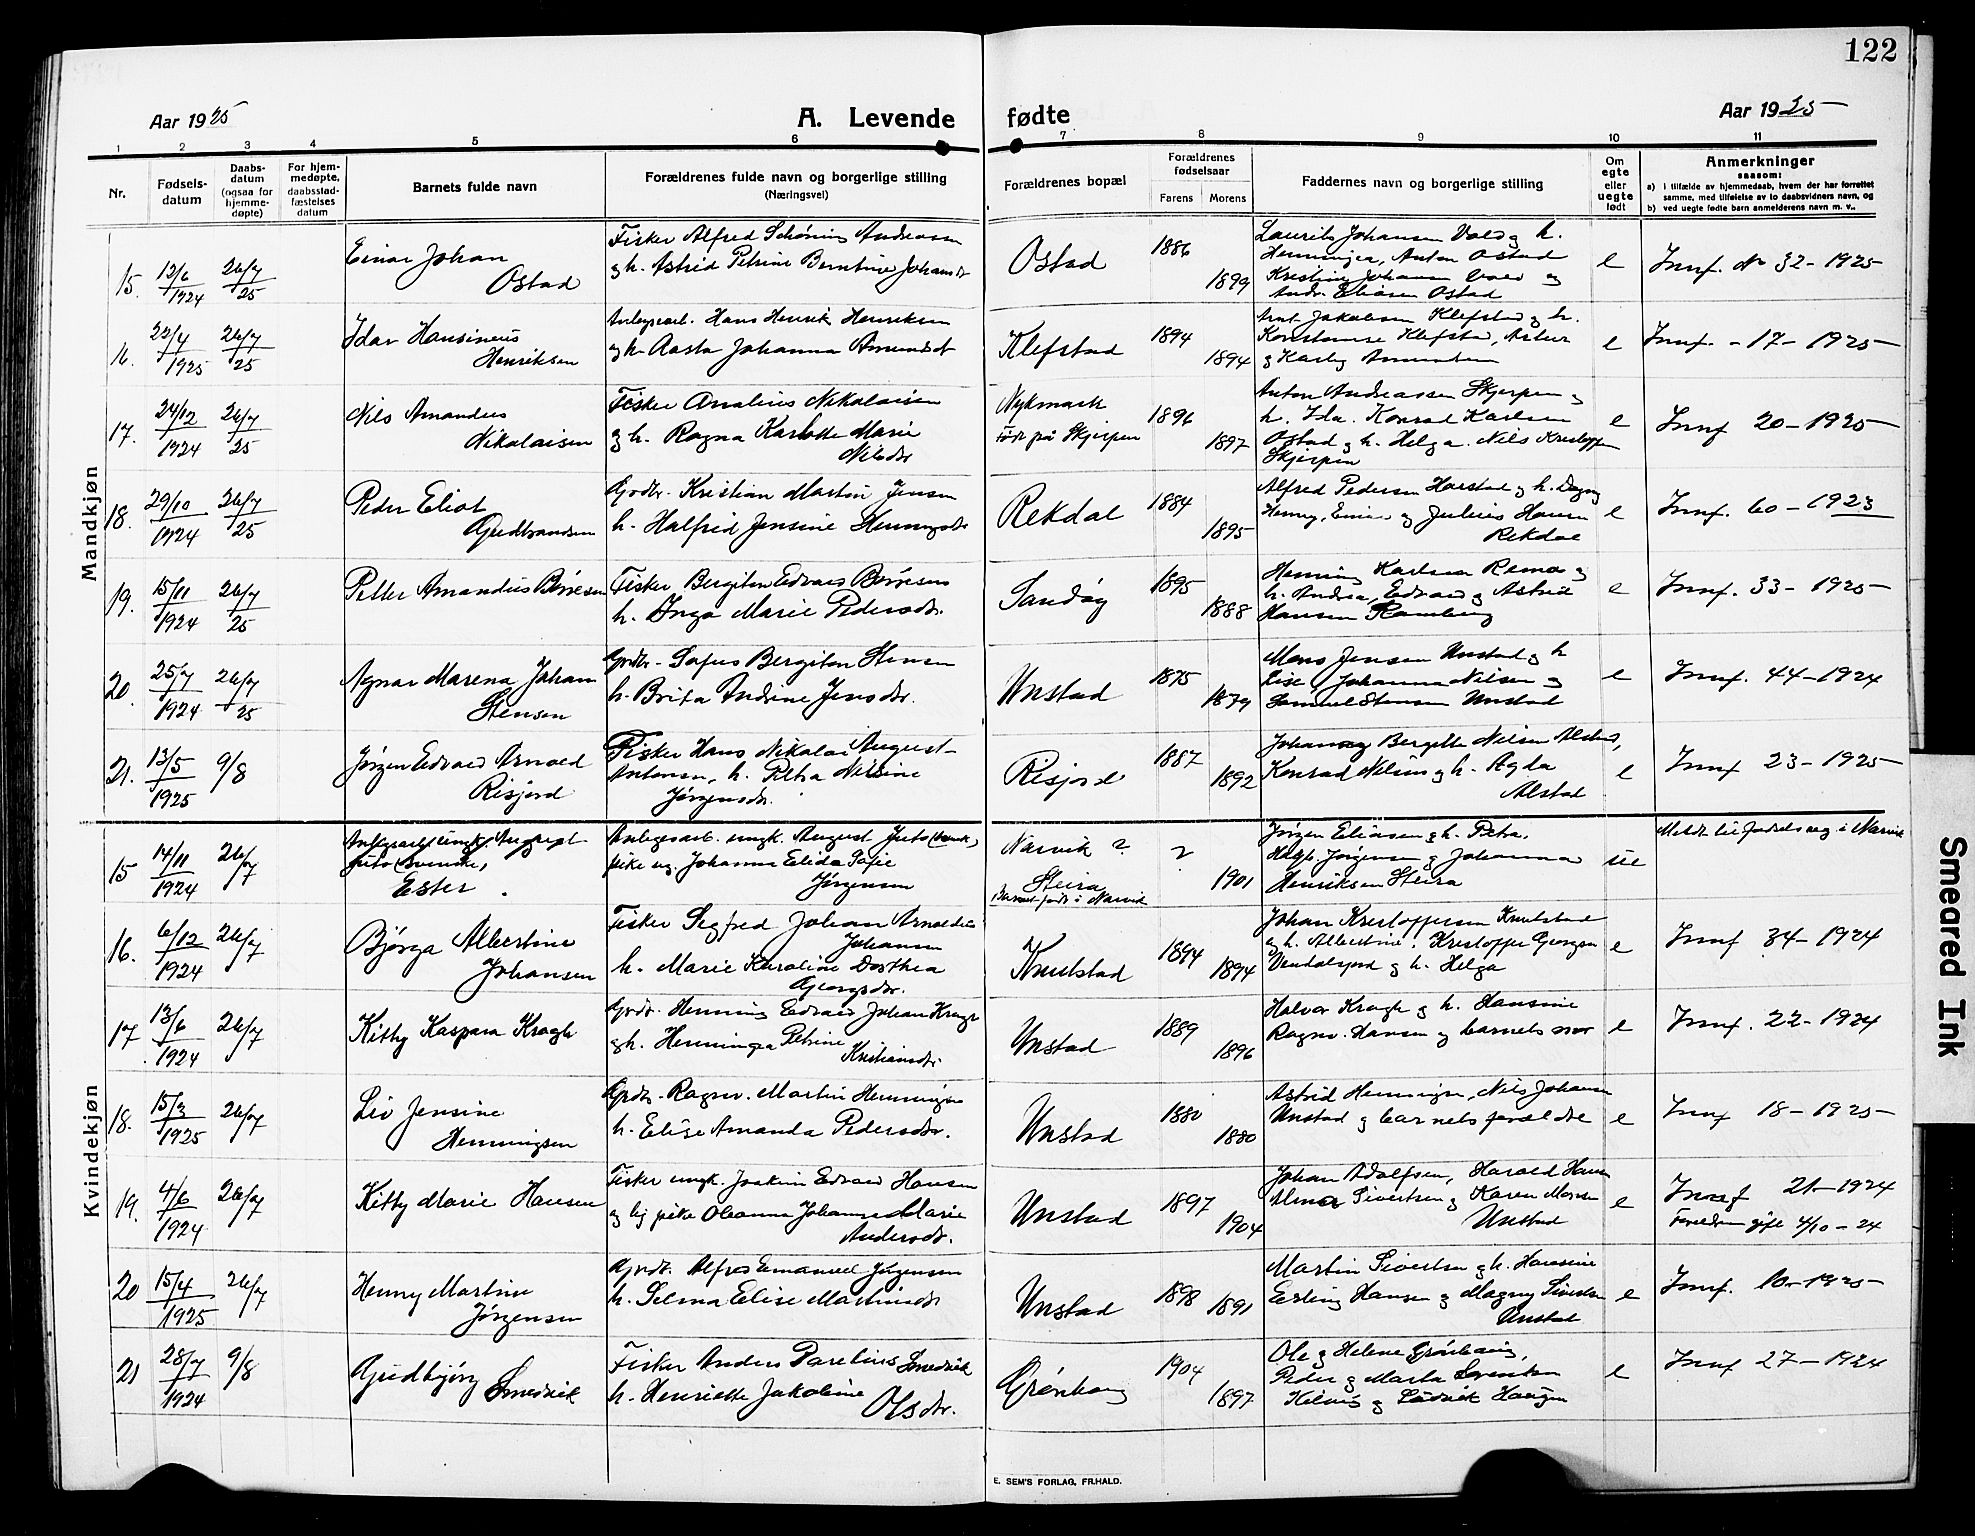 122
Aar 1925
A. Levende
fødte
Aar 1925
1 2 3 4 5 6 7 8 9 10 11
Nr.
Fødsels-
datum
Daabs-
datum
(ogsaa for
hjemme-
døpte)
For hjem-
medøpte,
daabsstad-
fæstelses
datum
Barnets fulde navn
Forældrenes fulde navn og borgerlige stilling
(Næringsvei)
Forældrenes bopæl
Forældrenes
fødselsaar
Farens
Morens
Faddernes navn og borgerlige stilling
Om
egte
eller
uegte
født
Anmerkninger
saasom:
a) i tilfælde av hjemmedaab, hvem der har forrettet
samme, med tilføielse av to daabsvidners navn, og
b) ved uegte fødte barn anmelderens navn m. v..
Mandkjøn
15. 12/6 1924 26/7 25
Einar Johan
Ostad
Fisker Alfred Schøning Andreassen
og h. Astrid Petrine Berntine Johansdt
Ostad
1886
1899
Laurits Johansen Vold og h.
Henninga, Anton Ostad
Kristine Johansen Vold og
Andr. Eliasen Ostad
e
Innf. No 32-1925
16. 22/4 1925 26/7 25
Idar Hansineus
Henriksen
Anlegsarb. Hans Henrik Henriksen
og h. Aasta Johanna Amundsdt
Klefstad
1894
1894
Arnt Jakobsen Klefstad og h.
Konstanse Klefstad, Astur
og Harly Amundsen
e
Innf. - 17 - 1925
17. 24/12 1924 26/7 25
Nils Amandus
Nikolaisen
Fisker Analius Nikolaisen
og h. Ragna Karlotte Marie
Nilsdr
Nykmark
Født på Skjerpen
1896
1897
Anton Andreassen Skjerpen og
h. Ida. Konrad Karlsen
Ostad og h. Helga. Nils Kristoffer
Skjerpen
e
Innf 20-1925
18. 29/10 1924 26/7 25
Peder Eliot
Gudbrandsen
Grdbr. Kristian Martin Jensen
h. Halfrid Jensine Henningsdr
Rekdal
1884
1895
Alfred Pedersen Harstad og h. Dagny
Henny, Einar og Julius Hansen
Rekdal
e
Innf. 60-1923
19. 15/11 1924 26/7 25
Petter Amandus Børresen
Fisker Bergiton Edvard Børresen
h. Inga Marie Pedersdr.
Sandøy
1895
1888
Henning Karlsen Remo og
h. Andrea, Edvard og Astrid
Hansen Ramberg
e
Innf. 33-1925
20. 25/7 1924 26/7 25
Agnar Marena Johan
Stensen
Grdbr. Sofus Bergiton Stensen
h. Brita Andrine Jensdr.
Unstad
1875
1879
Mons Jensen Unstad og h
Lise, Johanna Nilsen og
Samuel Stensen Unstad
e
Innf. 44-1924
21. 13/5 1925 9/8
Jørgen Edvard Arnold
Risjord
Fisker Hans Nikolai August
Antonsen, h. Petra Nilsine
Jørgensdr.
Risjord
1887
1892
Johan og Bergitte Nilsen Alstad,
Konrad Nilsen og h. Agda
Alstad
e
Innf 23-1925
Kvindekjøn
15 14/11 1924 26/7
Anlegsarb. ungk. August
Juto (svenske),
Ester
Anlegsarb. ungk. August Juto (svensk),
pike ug. Johanna Elida Sofie
Jørgensen
Narvik ?
Steira
Barnet født i Narvik
?
1901
Jørgen Eliasen og h. Petra.
Helge Jørgensen og Johanna
Henriksen Steira
ue
Meldt til fødselsreg. i Narvik
16. 6/12 1924 26/7
Bjørga Albertine
Johansen
Fisker Segfred Johan Arnoldus
Johansen
h. Marie Karoline Dorthea
Georgsdr.
Knutstad
1894
1894
Johan Kristoffersen Knutstad
og h. Albertine. Kristoffer Georgsen
Vendalsjord og h. Helga
e
Innf 34-1924
17 13/6 1924 26/7
Kitty Kaspara Krogh
Grdbr. Henning Edvard Johan Krogh
og h. Henninga Petrine
Kristiansdr.
Unstad
1889
1896
Halvor Krogh og h. Hansine
Ragnv. Hansen og barnets mor
e
Innf. 22-1924
18. 15/3 1925 26/7
Liv Jensine
Henningsen
Grdbr. Ragnv. Martin Henningsen
h. Elise Amanda Pedersdr.
Unstad
1880
1880
Astrid Henningsen, Nils Johansen
Unstad og barnets forældre
e
Innf 18-1925
19. 4/6 1924 26/7
Kitty Marie Hansen
Fisker ungk. Joakim Edvard Hansen
og lig pike Oleanna Johanna Marie
Andersdr.
Unstad
1897
1904
Johan Adolfsen, Harald Hansen
Alma Sivertsen og Karen Monsen
Unstad
e
Innf 21-1924
Foreldrene gift 4/10-24
20 15/4 1925 26/7
Henny Martine
Jørgensen
Grdbr. Alfred Emanuel Jørgensen
h. Selma Elise Martinsdr
Unstad
1898
1891
Martin Sivertsen og h. Hansine
Erling Hansen og Magny Sivertsen
Unstad
e
Innf. 10-1925
21 28/7 1924 9/8
Gudbjørg Smedvik
Fisker Anders Parelius Smedvik
h. Henriette Jakobine
Olsdr.
Grønhaug
1904
1897
Ole og Helene Grønhaug,
Peder og Marta Lorentsen
Hilmis og Ludvik Haugen
e
Innf 27-1924
E. SEM'S FORLAG, FR.HALD.
Smeared Ink